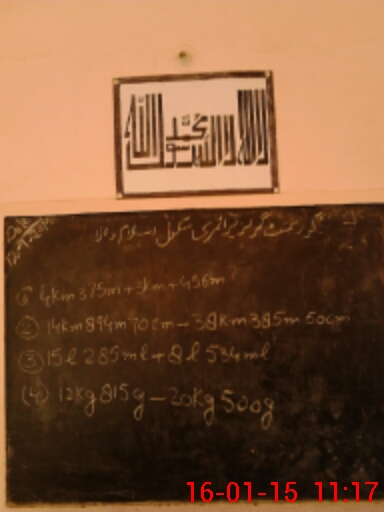 لا اله الا الله محمد رسول الله
گورنمنٹ گرلز پرائمری سکول اسلام والا
4km 375m + 3km + 456m
② 14km 894m 70cm - 38km 385m 50cm
③ 15l 285ml + 8l 534ml
(4) 12kg 815g - 20kg 500g
16-01-15 11:17